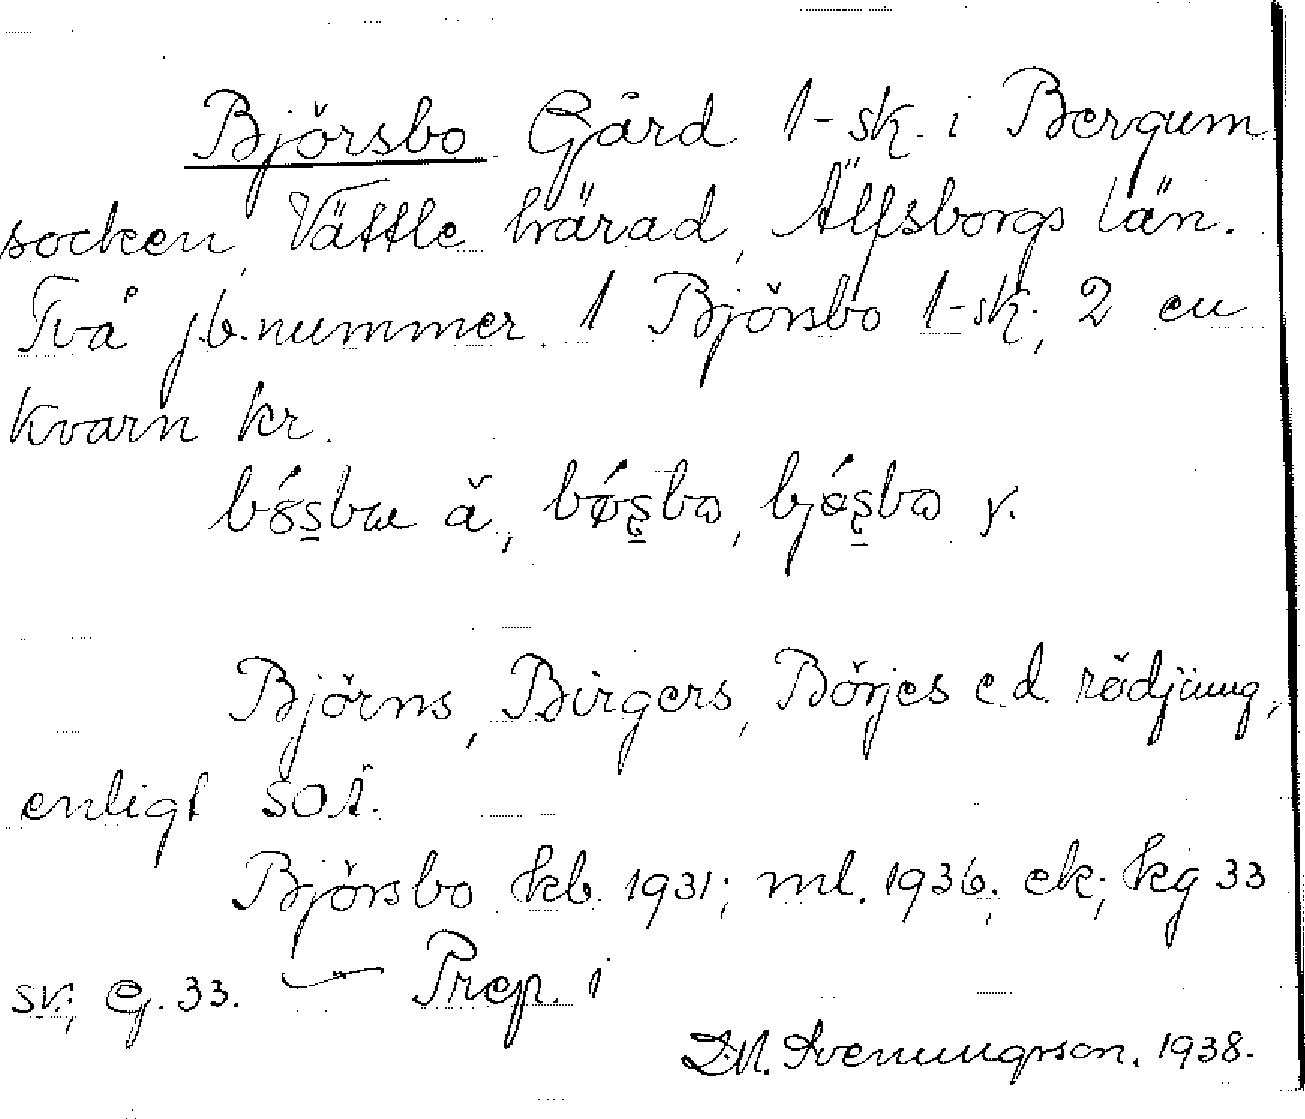 Björsbo Gård 1-sk. i Bergum
socken, Vättle härad, Älfsborgs län.
Två jb.nummer. 1 Björsbo 1-sk.; 2 en
kvarn kr.
bó̤s̠bɯ ä., bǿs̠bɷ, bjǿs̠bɷ y.
Björns, Birgers, Börjes e.d. rödjning,
enligt SOÄ.
Björsbo kb. 1931; ml. 1936; ek; kg 33
sv.; eg. 33. — Prep. i
D.M. Svenungsson. 1938.